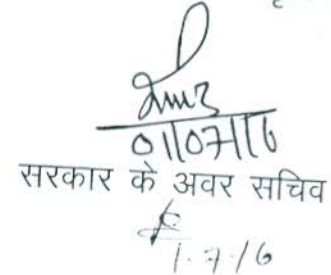 01/07/16
सरकार के अवर सचिव
1.7.16